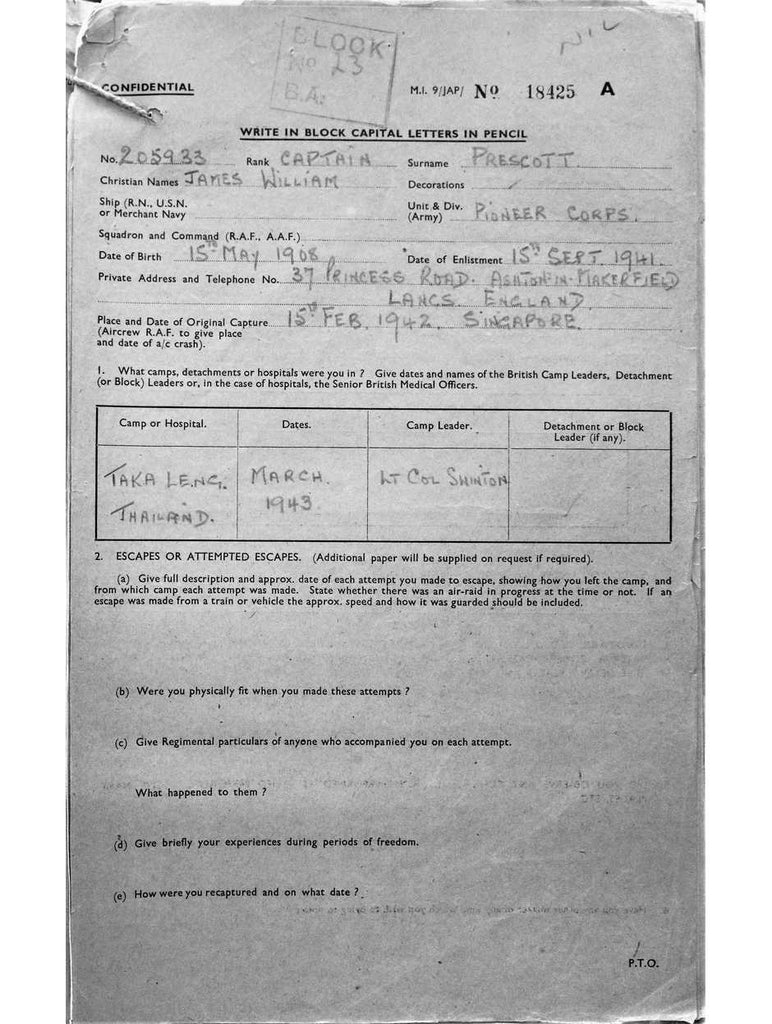 BLOCK
No 23
B.A.
NIL
CONFIDENTIAL
M.I. 9/JAP/ No 18425 A
WRITE IN BLOCK CAPITAL LETTERS IN PENCIL
No. 205933 Rank CAPTAIN Surname PRESCOTT
Christian Names JAMES WILLIAM Decorations
Ship (R.N., U.S.N. or Merchant Navy
Unit & Div. (Army) PIONEER CORPS.
Squadron and Command (R.A.F., A.A.F.)
Date of Birth 15TH MAY 1908 Date of Enlistment 15TH SEPT. 1941.
Private Address and Telephone No. 37 PRINCESS ROAD. ASHTON-IN-MAKERFIELD
LANCS. ENGLAND.
Place and Date of Original Capture 15TH FEB. 1942. SINGAPORE.
(Aircrew R.A.F. to give place
and date of a/c crash).
1. What camps, detachments or hospitals were you in ? Give dates and names of the British Camp Leaders, Detachment
(or Block) Leaders or, in the case of hospitals, the Senior British Medical Officers.
Camp or Hospital. Dates. Camp Leader. Detachment or Block
Leader (if any).
TAKA LENG. MARCH. LT COL SHINTON
THAILAND. 1943.
2. ESCAPES OR ATTEMPTED ESCAPES. (Additional paper will be supplied on request if required).
(a) Give full description and approx. date of each attempt you made to escape, showing how you left the camp, and
from which camp each attempt was made. State whether there was an air-raid in progress at the time or not. If an
escape was made from a train or vehicle the approx. speed and how it was guarded should be included.
(b) Were you physically fit when you made these attempts ?
(c) Give Regimental particulars of anyone who accompanied you on each attempt.
What happened to them ?
(d) Give briefly your experiences during periods of freedom.
(e) How were you recaptured and on what date ?
P.T.O.